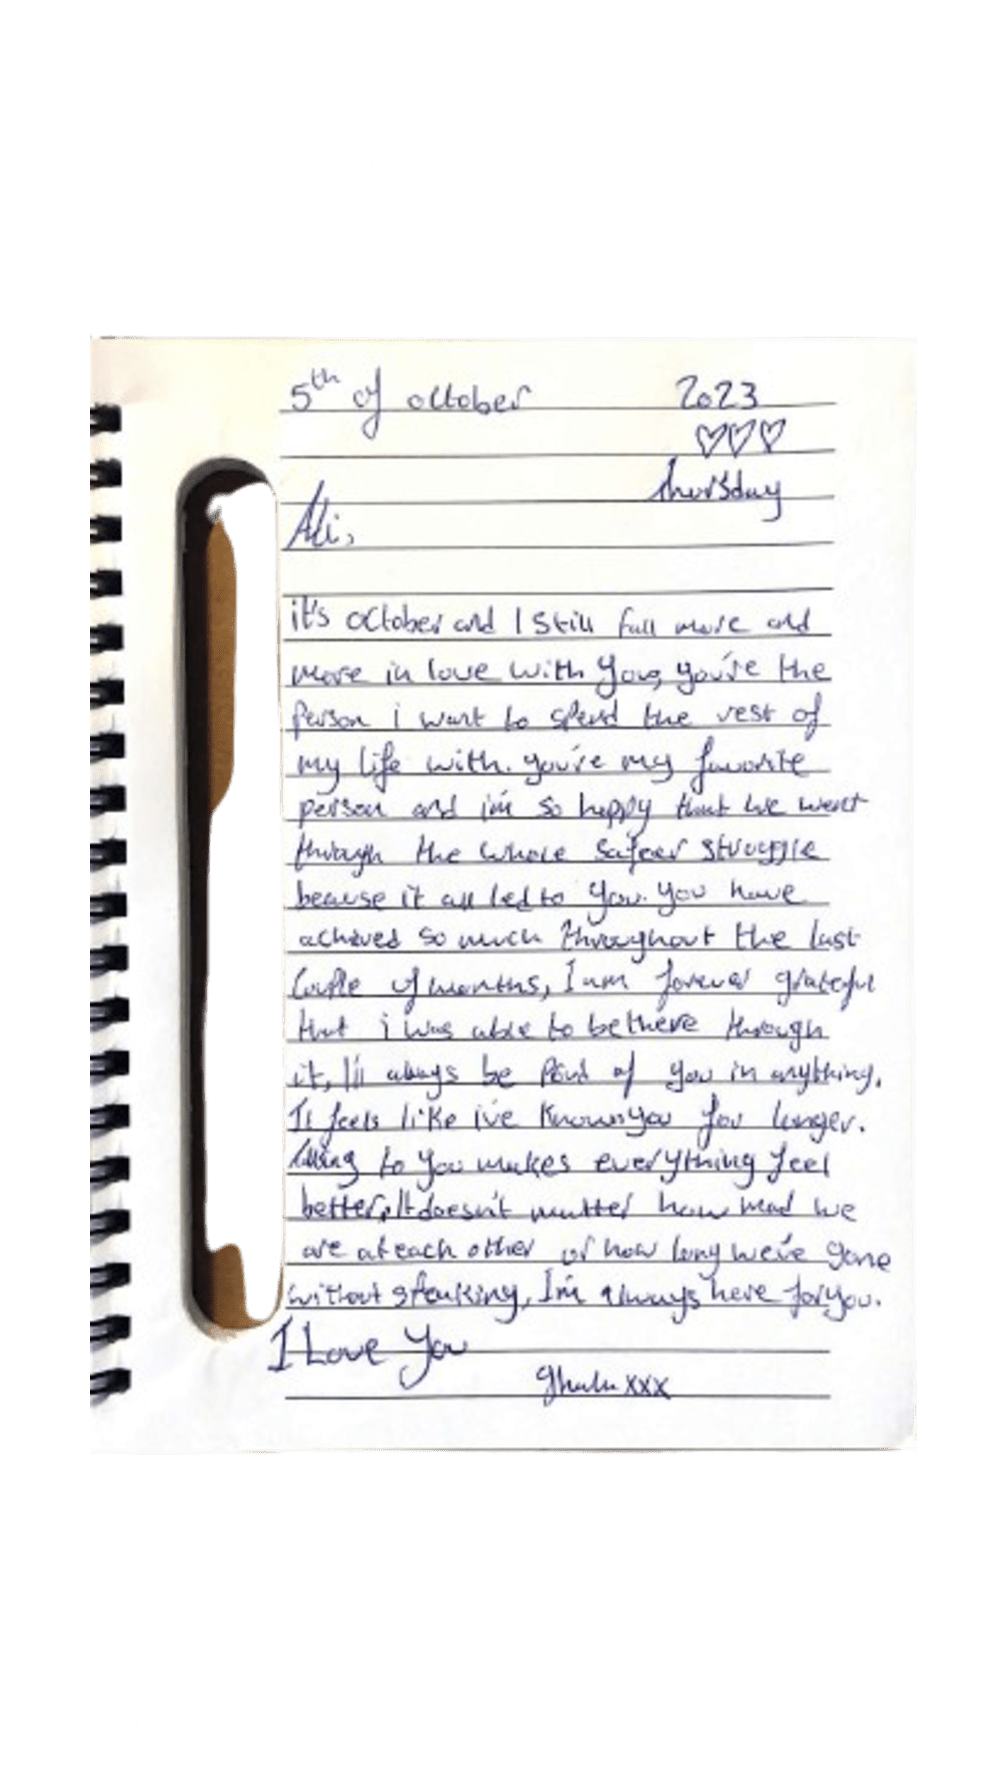 5th of october 2023
♡♡♡
thursday
Ali,
it's october and I still fall more and
more in love with you, you're the
person i want to spend the rest of
my life with. you're my favorite
person and i'm so happy that we went
through the whole safeer struggle
because it all led to you. you have
achieved so much throughout the last
couple of months, I am forever grateful
that i was able to be there through
it, I'll always be proud of you in anything.
It feels like i've known you for longer.
to you makes everything feel
better, It doesn't matter how mad we
are at each other or how long we've gone
without speaking, I'm always here for you.
I Love You
xxx